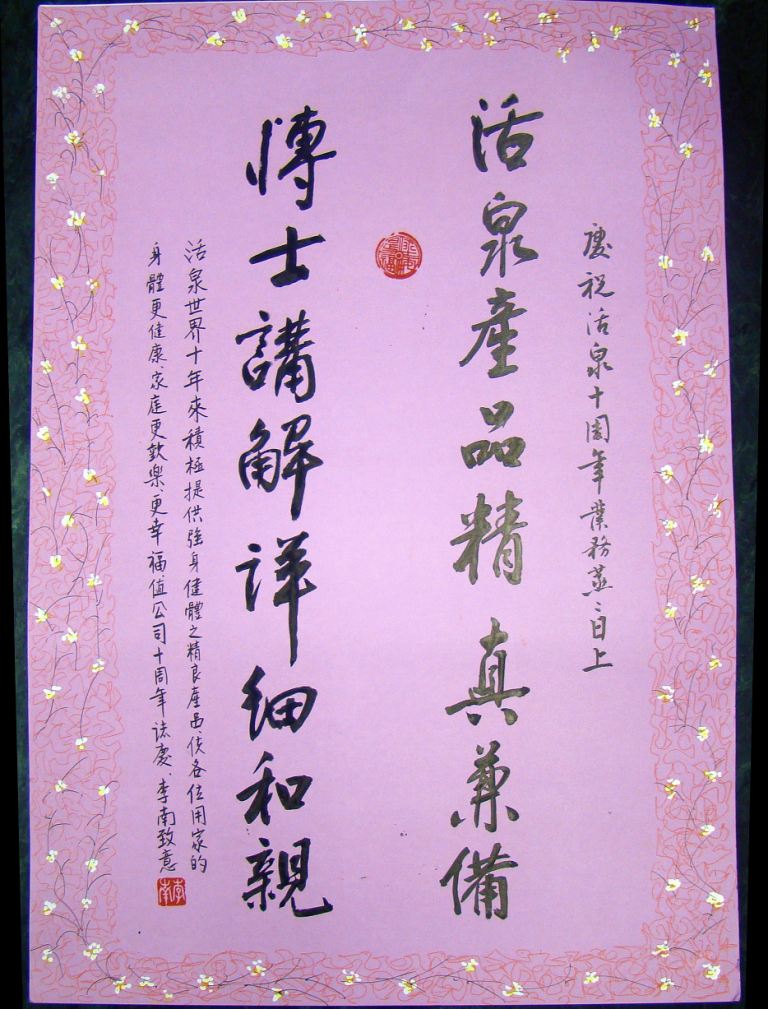 慶祝活泉十周年業務蒸蒸日上
活泉產品精真兼備
博士講解詳細和親
活泉世界十年來積極提供強身健體之精良產品、使各位用家的
身體更健康、家庭更歡樂、更幸福值公司十周年誌慶、李南致意
李南